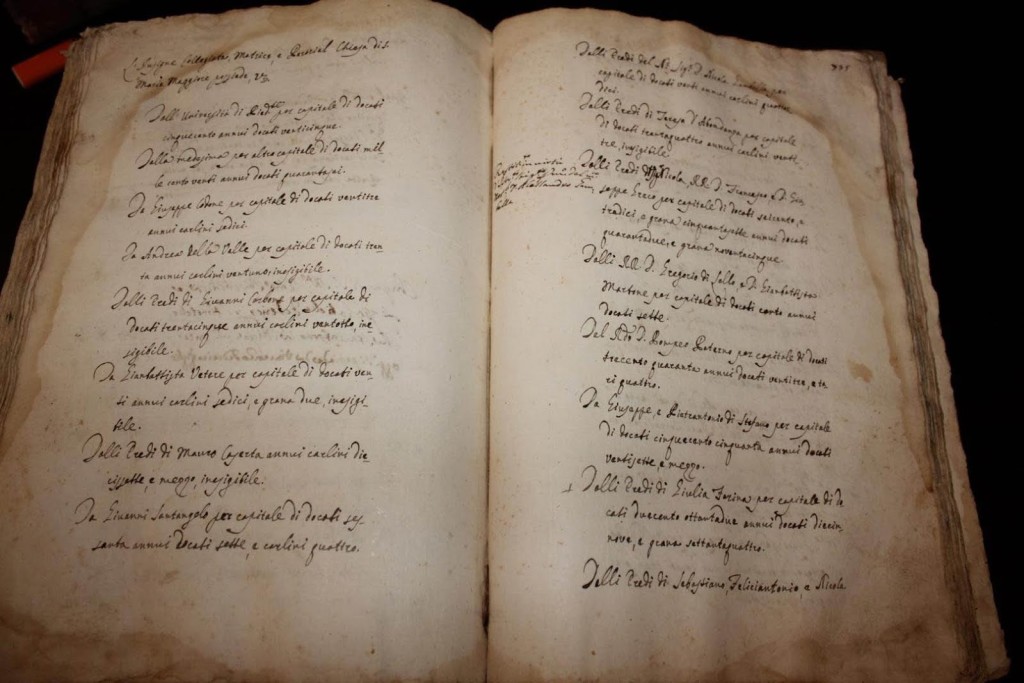 L'Insigne Collegiata, Matrice, e Parochial Chiesa di S.
Maria Maggiore possiede, Vz
Dall'Università di per capitale di docati
cinquecento annui docati venticinque
Dalla medesima per altro capitale di docati mil-
le cento venti annui docati quarantasei.
Da Giuseppe Cedrone per capitale di docati ventitre
annui carlini sedici.
Da Andrea della Valle per capitale di docati tren-
ta annui carlini ventuno, inesigibile.
Dalli Eredi di Giovanni Carbone per capitale di
docati trentacinque annui carlini ventotto, ine
sigibile.
Da Gianbattista Vetere per capitale di docati ven-
ti annui carlini sedici, e grana due, inesigi-
bile.
Dalli Eredi di Mauro Caserta annui carlini die-
cissette, e mezzo, inesigibile.
Da Giovanni Santangelo per capitale di docati ses
santa annui docati sette, e carlini quattro.
Dalli Eredi del Sigr D. Nicola per
capitale di docati venti annui carlini quattor
dici.
Dalli Eredi di Teresa d'Abondanza per capitale
di docati trentaquattro annui carlini venti
tre, inesigibile
Dalli Eredi Nicola, RR. D. Francesco e D. Giu
seppe Greco per capitale di docati seicento, e
tredici, e grana cinquantasette annui docati
quarantadue, e grana novantacinque
Dalli RR. D. Gregorio di Lallo, e D. Gianbattista
Marbone per capitale di docati cento annui
docati sette.
Dal Rdo D. Pompeo Paterno per capitale di docati
trecento quaranta annui docati ventitre, e ta
ri quattro.
Da Giuseppe, e Pietrantonio di Stefano per capitale
di docati cinquecento cinquanta annui docati
ventisette, e mezzo.
Dalli Eredi di Giulia Farina per capitale di do
cati duecento ottantadue annui docati diecin
nove, e grana settantaquattro.
Dalli Eredi di Sebastiano, Feliciantonio, e Nicola